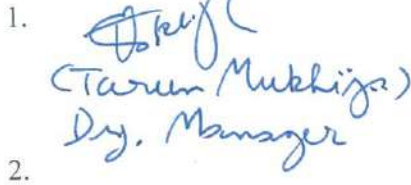 1.
(Tarun Mukhija)
Dy. Manager
2.